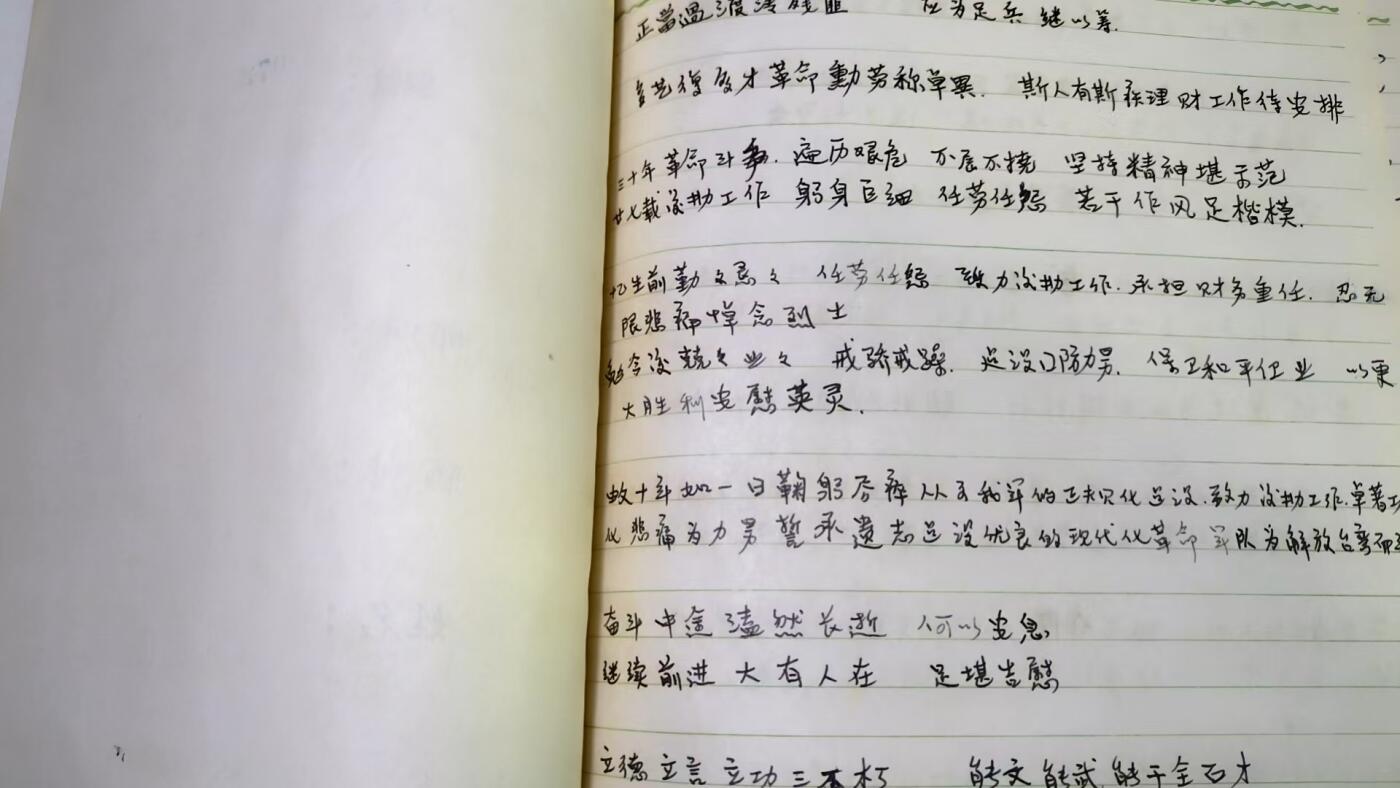 正當過渡 应为足兵继以筹.
多艺復多才革命勳劳称卓異. 斯人有斯疾理财工作待安排
三十年革命斗争. 遍历艰危 不屈不撓 坚持精神堪示范
廿七载后勤工作 躬身巨细 任劳任怨 若干作风足楷模.
忆生前勤々恳々 任劳任怨 致力后勤工作. 承担财务重任. 忍无
限悲痛悼念烈士
勉今后兢々业々 戒骄戒躁. 建设囗防力男. 保卫和平任业 以更
大胜利安慰英灵.
数十年如一日鞠躬尽瘁从事我军的正规化建设.致力后勤工作.卓著
化悲痛为力男誓承遗志建设优良的现代化革命军队为解放台湾而
奋斗中途溘然长逝 何以安息
继续前进 大有人在 足堪告慰
立德立言立功三不朽 能文能武能干全石才